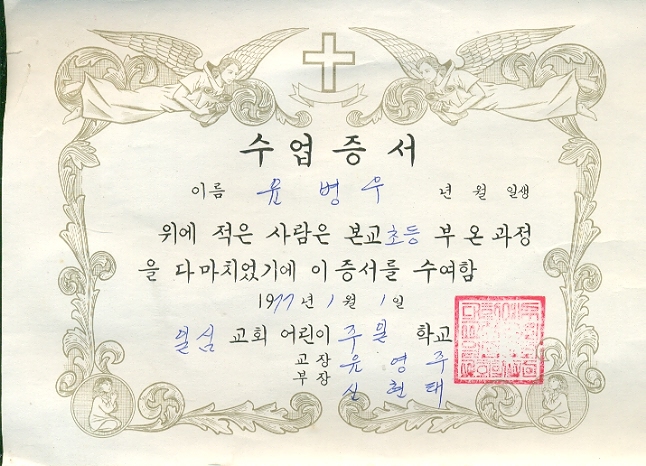 수업증서
이름 윤병우 년 월 일생
위에 적은 사람은 본교 초등 부 온 과정
을 다 마치었기에 이 증서를 수여함
1977년 1월 1일
열심 교회 어린이 주일 학교
교장 유영주
부장 신현태